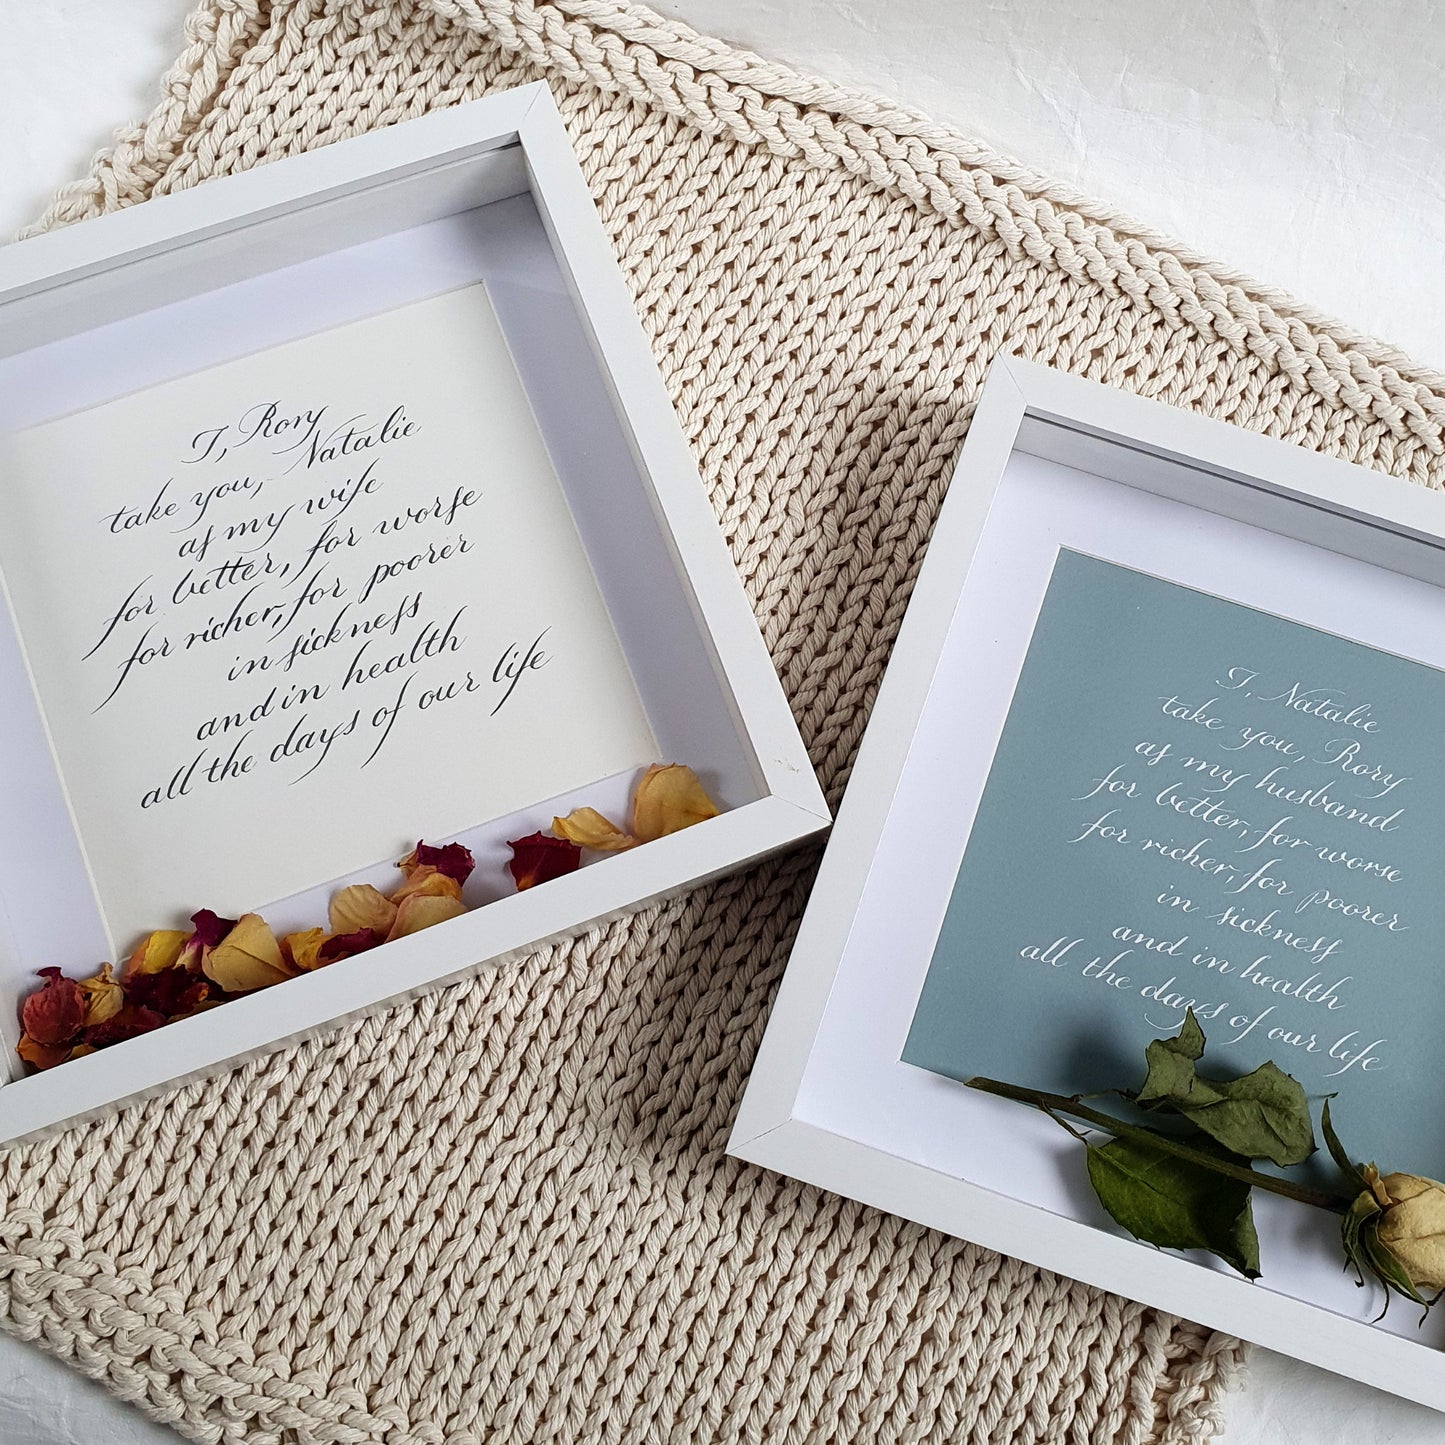 I, Rory
take you, Natalie
as my wife
for better, for worse
for richer, for poorer
in sickness
and in health
all the days of our life
I, Natalie
take you, Rory
as my husband
for better, for worse
for richer, for poorer
in sickness
and in health
all the days of our life